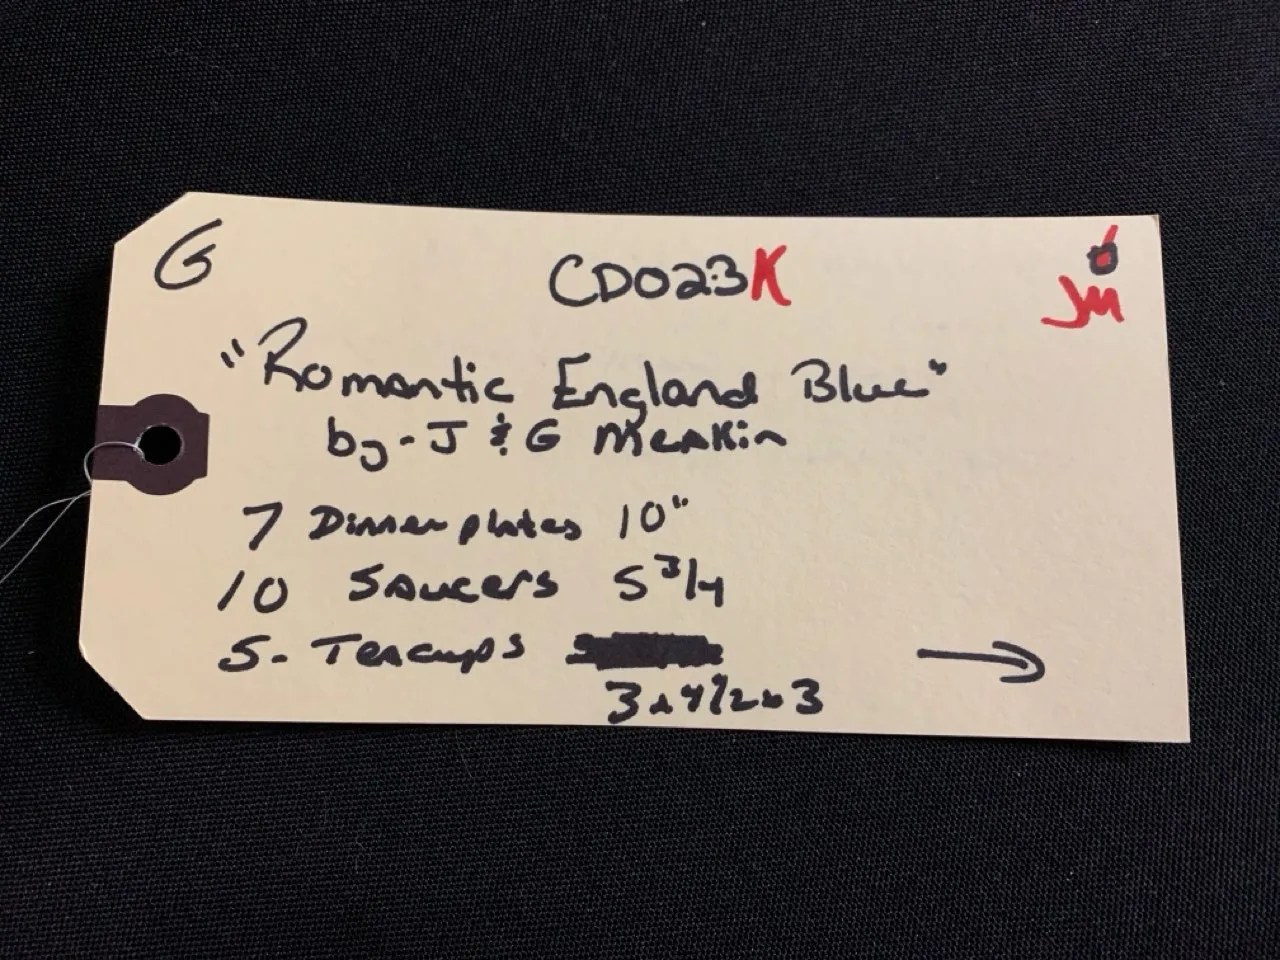 G
CD023K
JM
"Romantic England Blue"
by - J & G Meakin
7 Dinnerplates 10"
10 Saucers 5 3/4
5 - Teacups
3 x 4 1/2 x 3